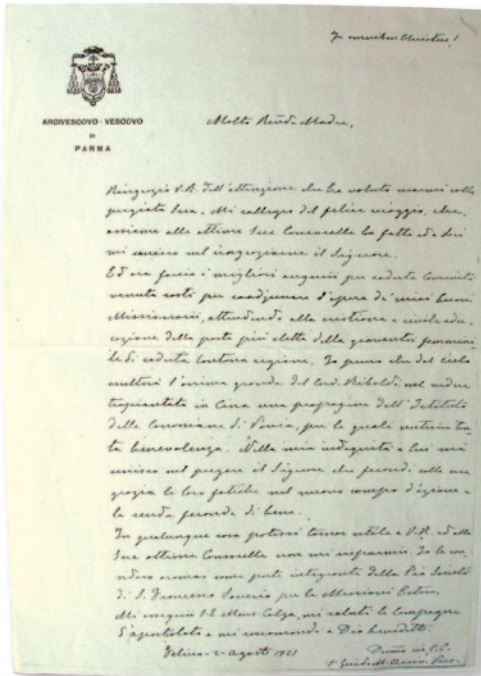 In omnibus Christus!
ARCIVESCOVO - VESCOVO
DI
PARMA
Molto Rev.da Madre,
Ringrazio V.R. dell'attenzione che ha voluto usarmi colla
pregiata Sua. Mi rallegro del felice viaggio, che,
assieme alle ottime Sue Consorelle ha fatto ed a Lei
mi unisco nel ringraziarne il Signore.
Ed ora faccio i migliori auguri per codesta Comunità
venuta costì per coadiuvare l'opera de' miei buoni
Missionari, attendendo alla cristiana e civile edu-
cazione della parte più eletta della gioventù femmini-
le di codesta lontana regione. Io penso che dal cielo
esulterà l'anima grande del Card. Riboldi nel vedere
trapiantata in Cina una propaggine dell'Istituto
delle Canossiane di Pavia, per le quali nutriva tan-
ta benevolenza. Nella mia indegnità a Lui mi
unisco nel pregare il Signore che fecondi colla sua
grazia le loro fatiche nel nuovo campo d'azione e
le renda feconde di bene.
In qualunque cosa potessi tornar utile a V.R. ed alle
Sue ottime Consorelle non mi risparmi. Io le con-
sidero oramai come parte integrante della Pia Società
di S. Francesco Saverio per le Missioni Estere.
Mi ossequi S.E. Mons. Calza, mi saluti le Compagne
d'apostolato e mi raccomandi a Dio benedetto.
Felino - 2 - agosto 1921
Devmo in G.C.
+ Guido M. Arciv. Vesc.